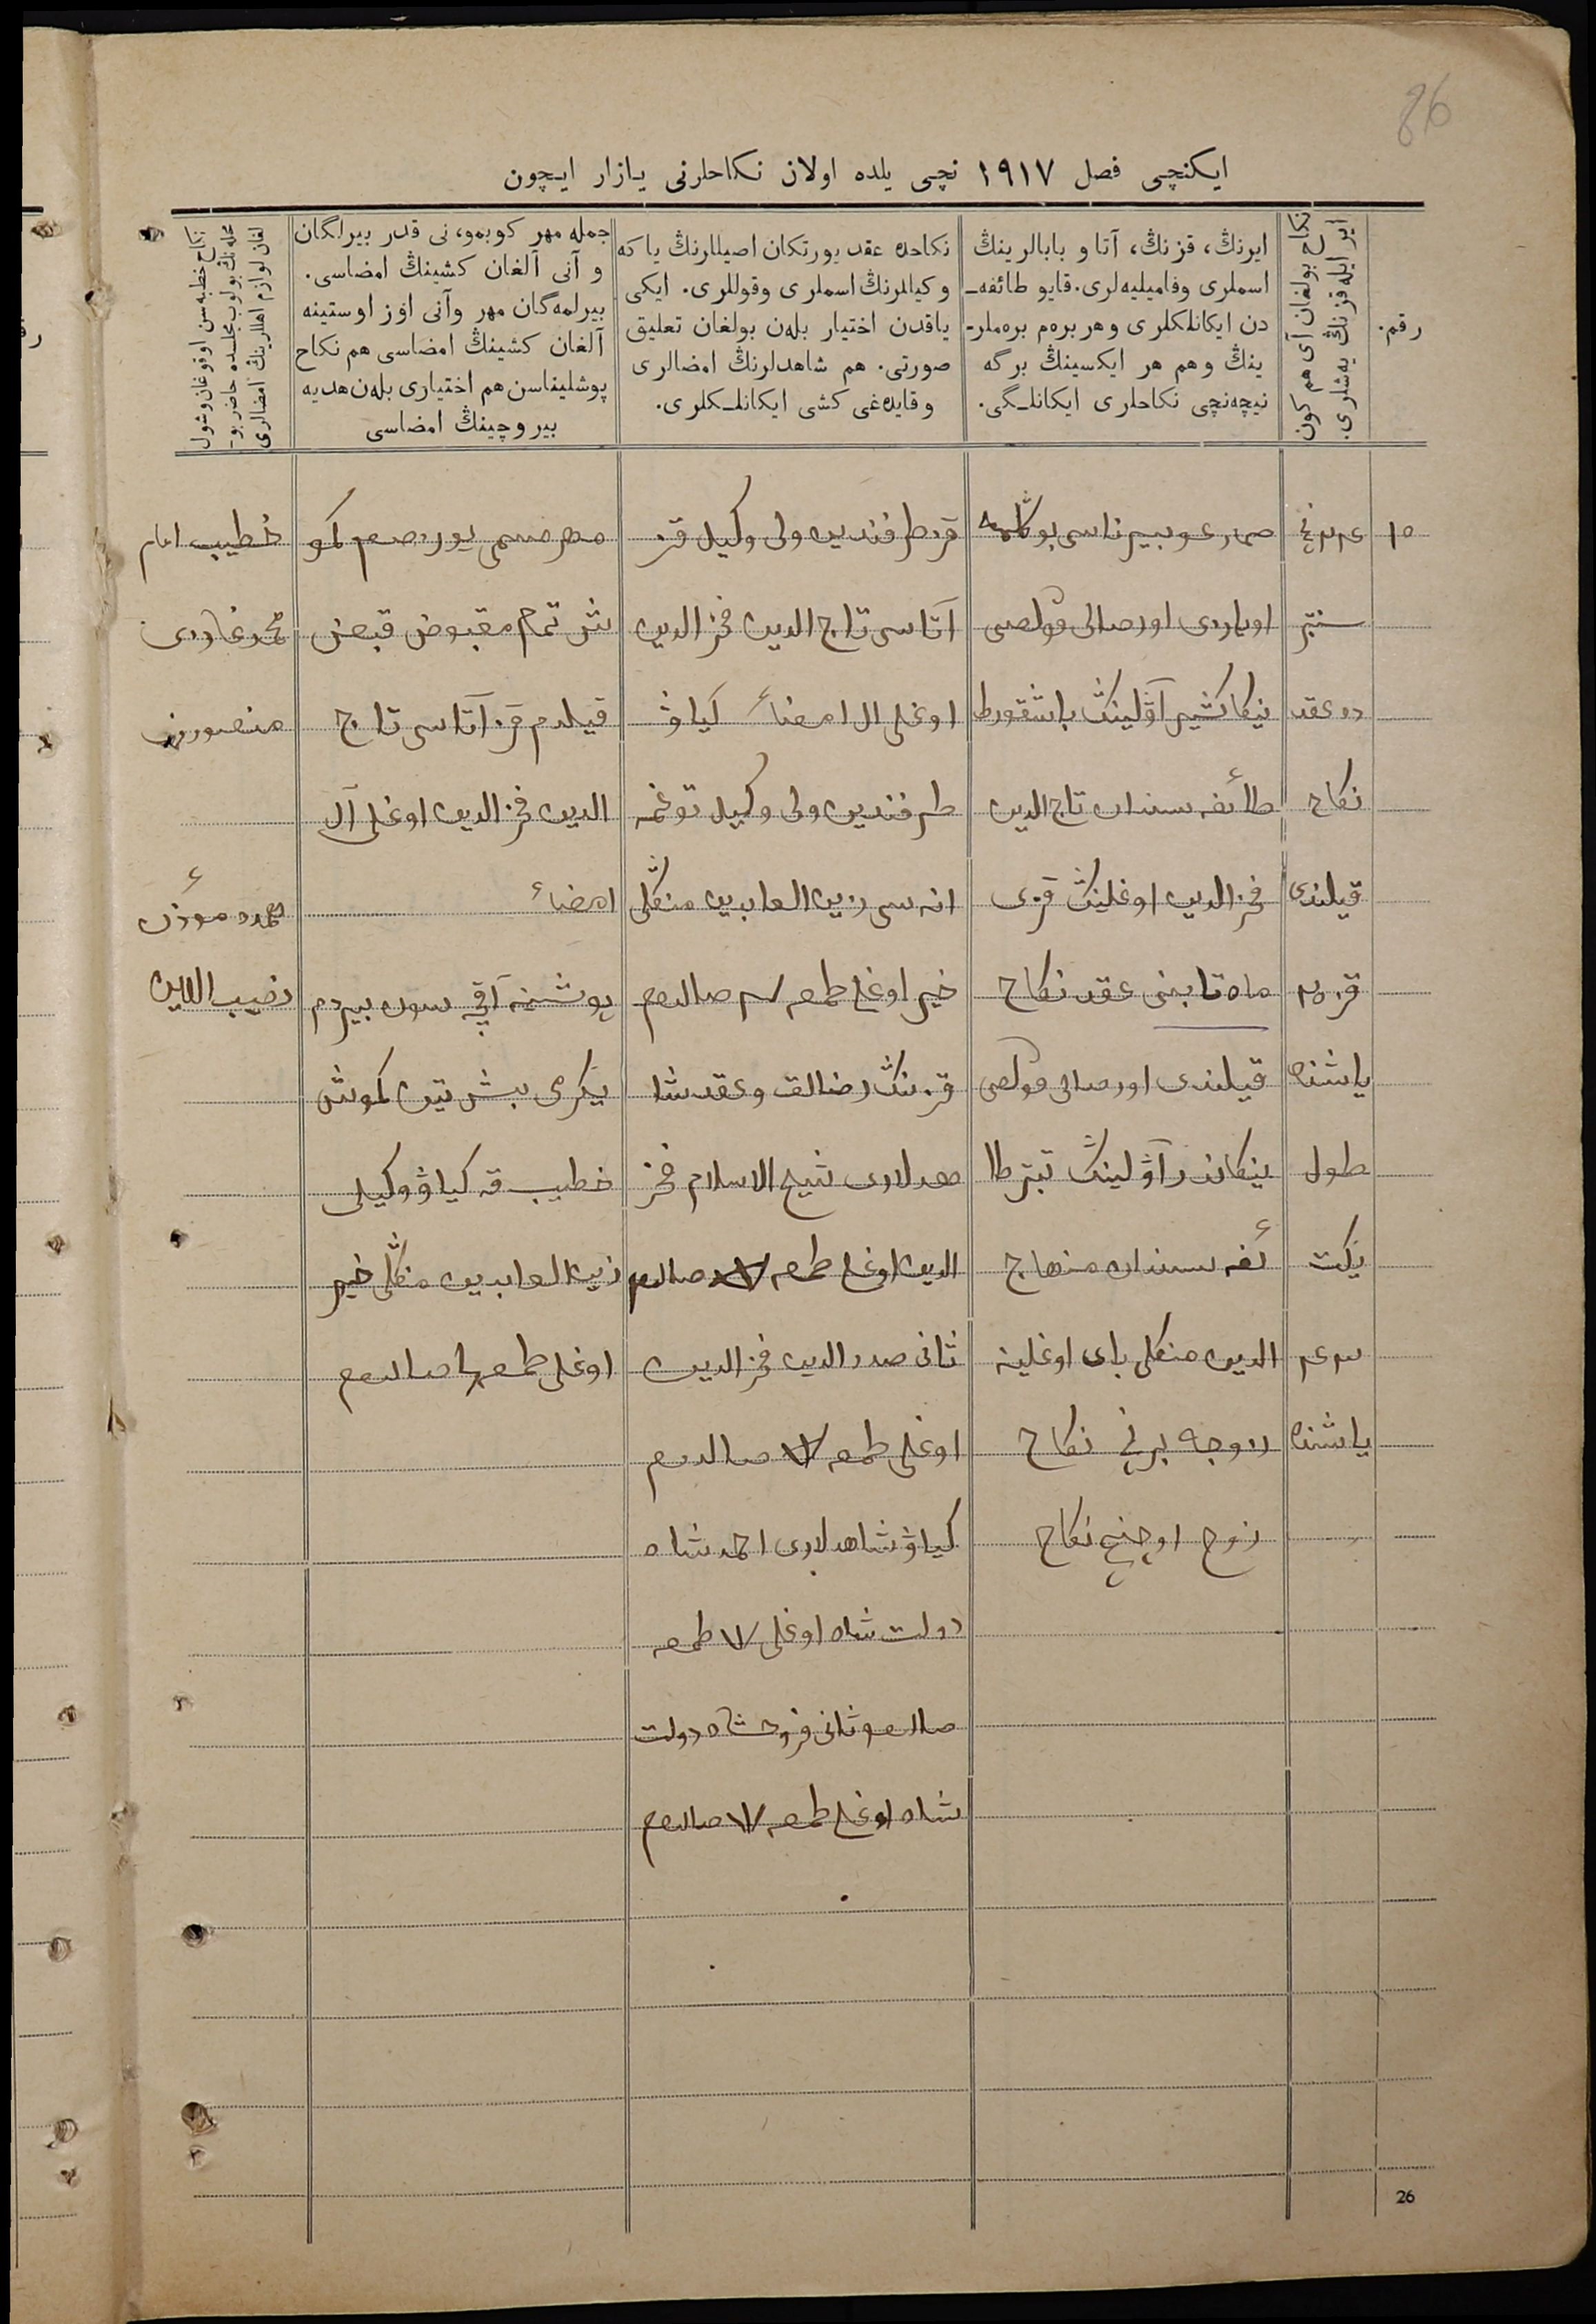 86
ایکنچی فصل ١٩١٧ نچی یلده اولان نکاحلرنی یازار ایچون
رقم.
نکاح بولغان آی هم کون
ایر ایله قزنڭ یه‌شلری.
ایرنڭ، قزنڭ، آتا و بابالرینڭ
اسملری وفامیلیه‌لری. قایو طائفه‌ـ
دن ایکانلکلری و هر بره‌م بره‌ملرـ
ینڭ و هم هر ایکسینڭ برگه
نیچه‌نچی نکاحلری ایکانلـگی.
نکاحده عقد یورتکان اصیللرنڭ یا که
وکیللرنڭ اسملری وقوللری. ایکی
یاقدن اختیار بله‌ن بولغان تعلیق
صورتی. هم شاهدلرنڭ امضالری
وقایده‌غی کشی ایکانلـکلری.
جمله مهر کوبمو، نی قدر بیرلگان
و آنی آلغان کشینڭ امضاسی.
بیرلمه‌گان مهر وآنی اوز اوستینه
آلغان کشینڭ امضاسی هم نکاح
پوشلیناسن هم اختیاری بله‌ن هدیه
بیروچینڭ امضاسی
نکاح خطبه‌سن اوقوغان وشول
محله‌نڭ بولوب مجلسده حاضر بوـ
لغان لوازم اهللرینڭ امضالری
١٥
سنتبر
ده عقد
نکاح
قیلندی
قز ٢٥
یاشنده
طول
یکت
٤٣
یاشنده
اوباردی اورصالی وولصی
نیکا کشیر آوُلینڭ باشقورط
طائفه سندان تاج الدین
فخر الدین اوغلینڭ قزی
ماه تابنی عقد نکاح
قیلندی اورصالی وولصی
ینکاندر آوُلینڭ تبتر طا
ئفه سندان منهاج
الدین منکلی بای اوغلینه
زوجه برنچی نکاح
زوج اوچنچی نکاح
قز طرفندین ولی وکیل قز
آتاسی تاج الدین فخر الدین
اوغلی ال امضاء کیاو
طرفندین ولی وکیل توغمه
انه سی زین العابدین منکلی
خیر اوغلی طمعه صالدم
قزنڭ رضالق وعقد شا
هدلاری شیخ الاسلام فخر
الدین اوغلی طمعه صالدم
ثانی صدر الدین فخر الدین
اوغلی طمعه صالدم
کیاو شاهدلاری احمد شاه
دولت شاه اوغلی طمعه
صالدم ثانی فرح شاه دولت
شاه اوغلی طمعه صالدم
مهر مسمی یوز صم کمو
ش تمام مقبوض قبض
قیلدم قز آتاسی تاج
الدین فخر الدین اوغلی آل
امضاء
پوشلنه آقچه سون بیردم
یکرمی بیش تین کموش
خطیب که کیاو وکیلی
زین العابدین منکلی خیر
اوغلی طمعه صالدم
خطیب امام
منصورف
مؤذن
26